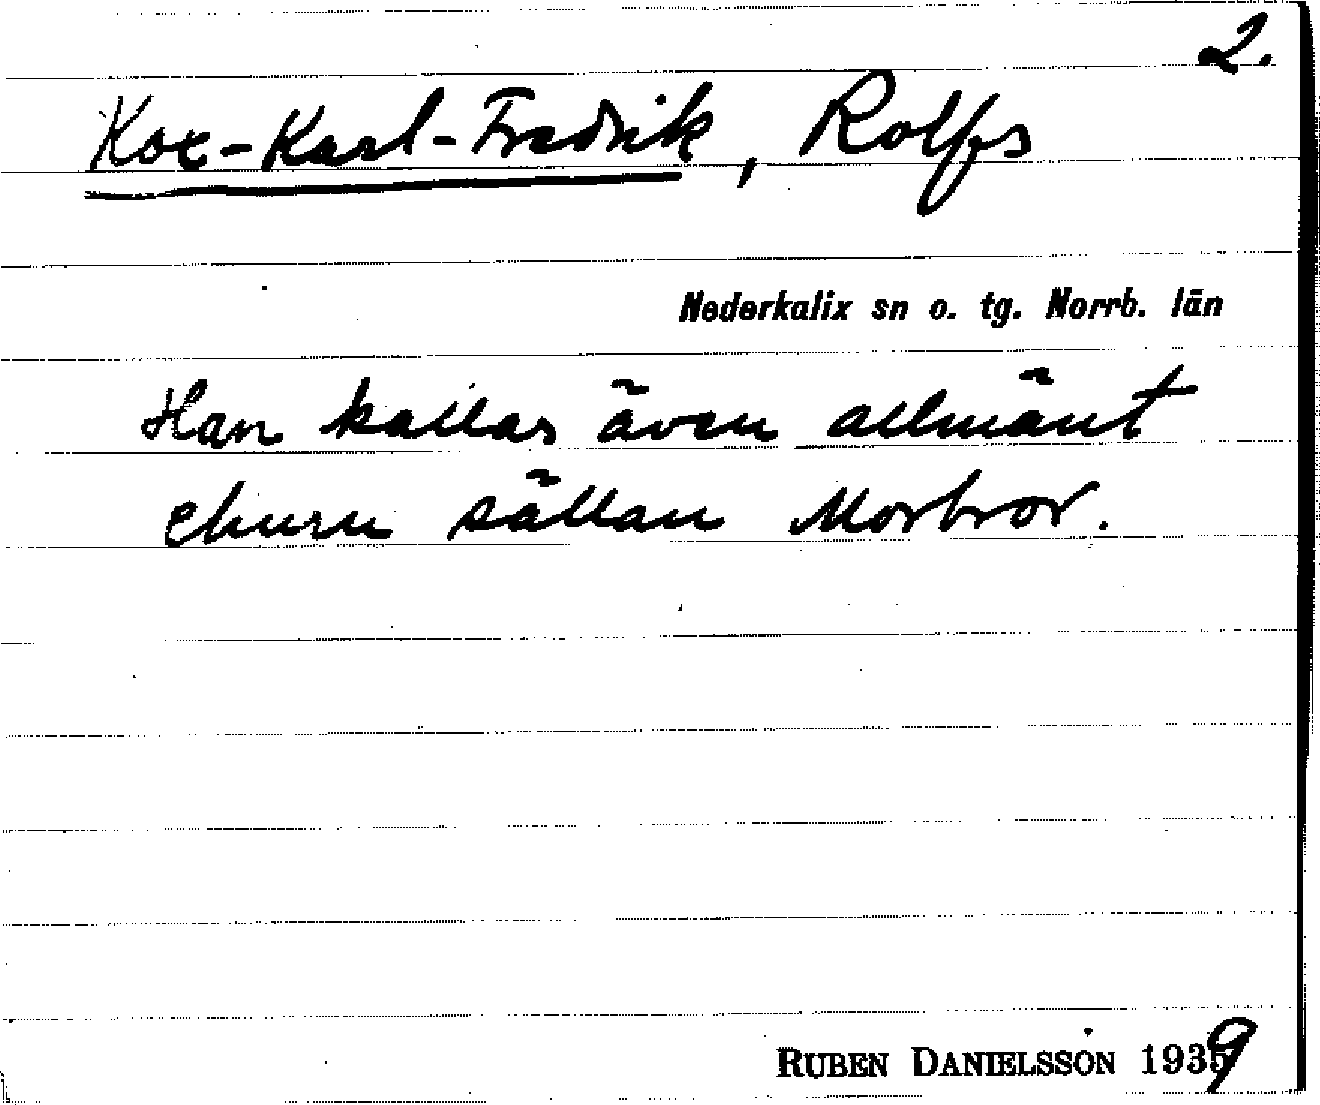 2.
Koc-Karl-Fredrik, Rolfs
Nederkalix sn o. tg. Norrb. län
Han kallas även allmänt
ehuru sällan Morbror.
RUBEN DANIELSSON 1939